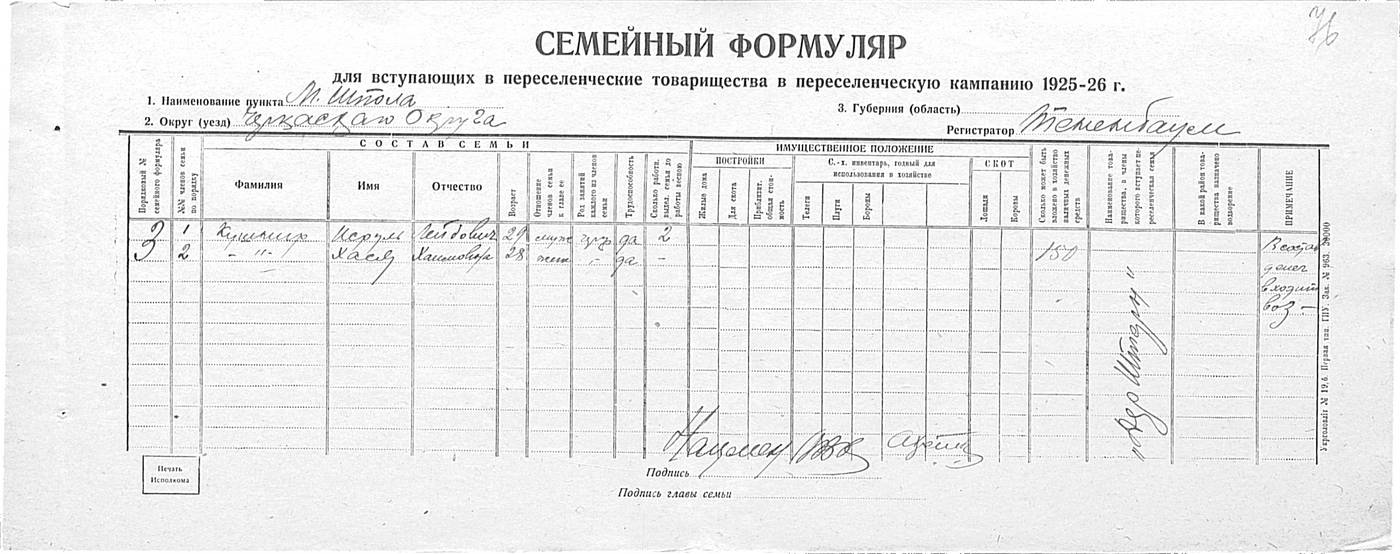 76
СЕМЕЙНЫЙ ФОРМУЛЯР
для вступающих в переселенческие товарищества в переселенческую кампанию 1925-26 г.
1. Наименование пункта М. Шпола
3. Губерния (область)
2. Округ (уезд) Черкасщаго Округа
Регистратор Тененбаум
СОСТАВ СЕМЬИ
ИМУЩЕСТВЕННОЕ ПОЛОЖЕНИЕ
Порядковый № семейного формуляра
№№ членов семьи по порядку
Фамилия
Имя
Отчество
Возраст
Отношение членов семьи к главе ее
Род занятий каждого из членов семьи
Трудоспособность
Сколько работн. выдел. семья до работы весною
ПОСТРОЙКИ
Жилые дома
Для скота
Приблизит. общая стоимость
С.-х. инвентарь, годный для использования в хозяйстве
Телеги
Плуги
Бороны
СКОТ
Лошади
Коровы
Сколько может быть вложено в хозяйство наличных денежных средств
Наименование товарищества, в члены которого вступает переселенческая семья
В какой район товарищества назначено водворение
ПРИМЕЧАНИЕ
3 1 Кушнир Исруль Лейбович 29 муж да 2
2 -"- Хася Хаимовна 28 жена -"- да - 150
В состав
денег
входит
воз -
„Дер Штерн"
Нацмен
Подпись
Подпись главы семьи
Печать
Исполкома
Укрголовліт № 19,6. Первая тип. ГИУ. Зак. № 963. 20000